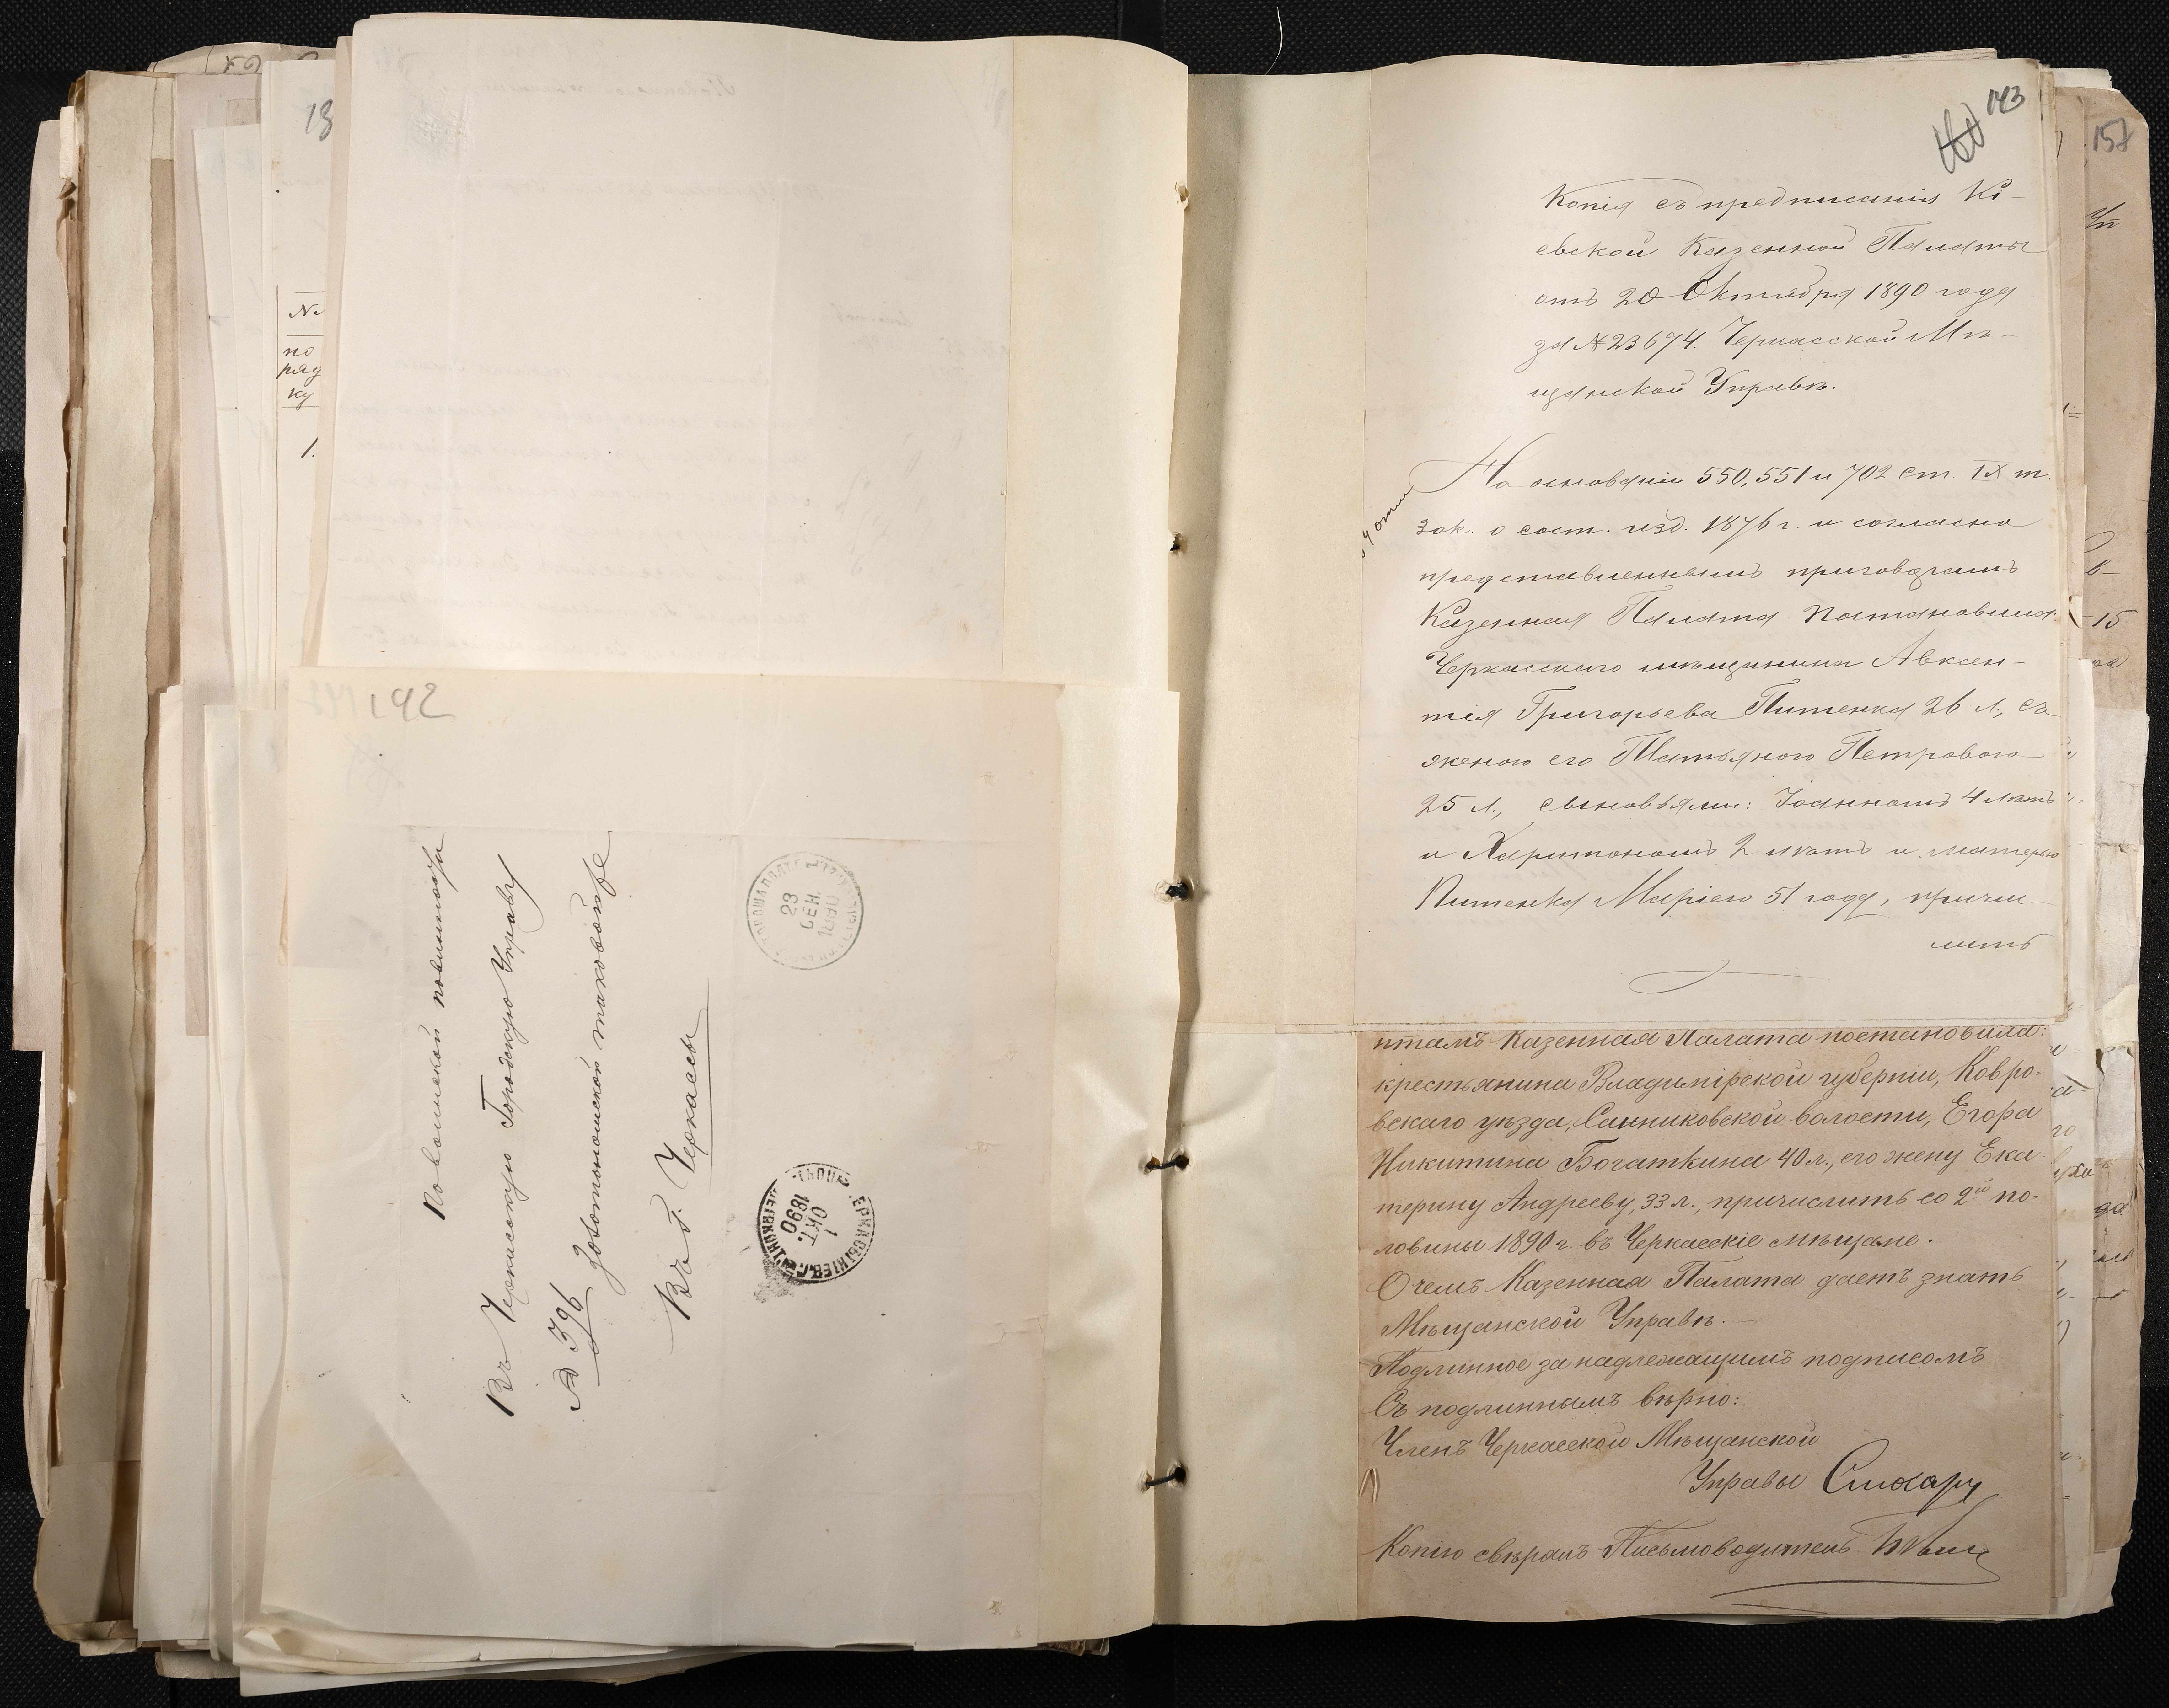 13
№
по
ряд
ку
1.
192
По воинской повинности
Въ Черкасскую Городскую Управу
№ 396 Золотоношской таковой же
Въ г. Черкассы
23
СЕН.
1890
1
ОКТ.
1890
143
157
Копія съ предписанія Кі-
евской Казенной Палаты
отъ 20 Октября 1890 года
за № 23674. Черкасской Мѣ-
щанской Управѣ.
На основаніи 550, 551 и 702 ст. IX т.
Зак. о сост. изд. 1876 г. и согласно
представленнымъ приговорамъ
Казенная Палата постановила:
Черкасскаго мѣщанина Авксен-
тія Григорьева Питенка 26 л., съ
женою его Татьяною Петровою
25 л., сыновьями: Іоанномъ 4 лѣтъ
и Харитономъ 2 лѣтъ и матерью
Питенка Маріею 51 года, причи-
лить
нтамъ Казенная Палата постановила:
крестьянина Владимірской губерніи, Ковро-
вскаго уѣзда, Санниковской волости, Егора
Никитина Богаткина 40 л., его жену Ека-
терину Андрееву, 33 л., причислить со 2й по-
ловины 1890 г. въ Черкасскіе мѣщане.
О чемъ Казенная Палата даетъ знать
Мѣщанской Управѣ.
Подлинное за надлежащимъ подписомъ
Съ подлиннымъ вѣрно:
Членъ Черкасской Мѣщанской
Управы
Копію свѣрялъ Письмоводитель